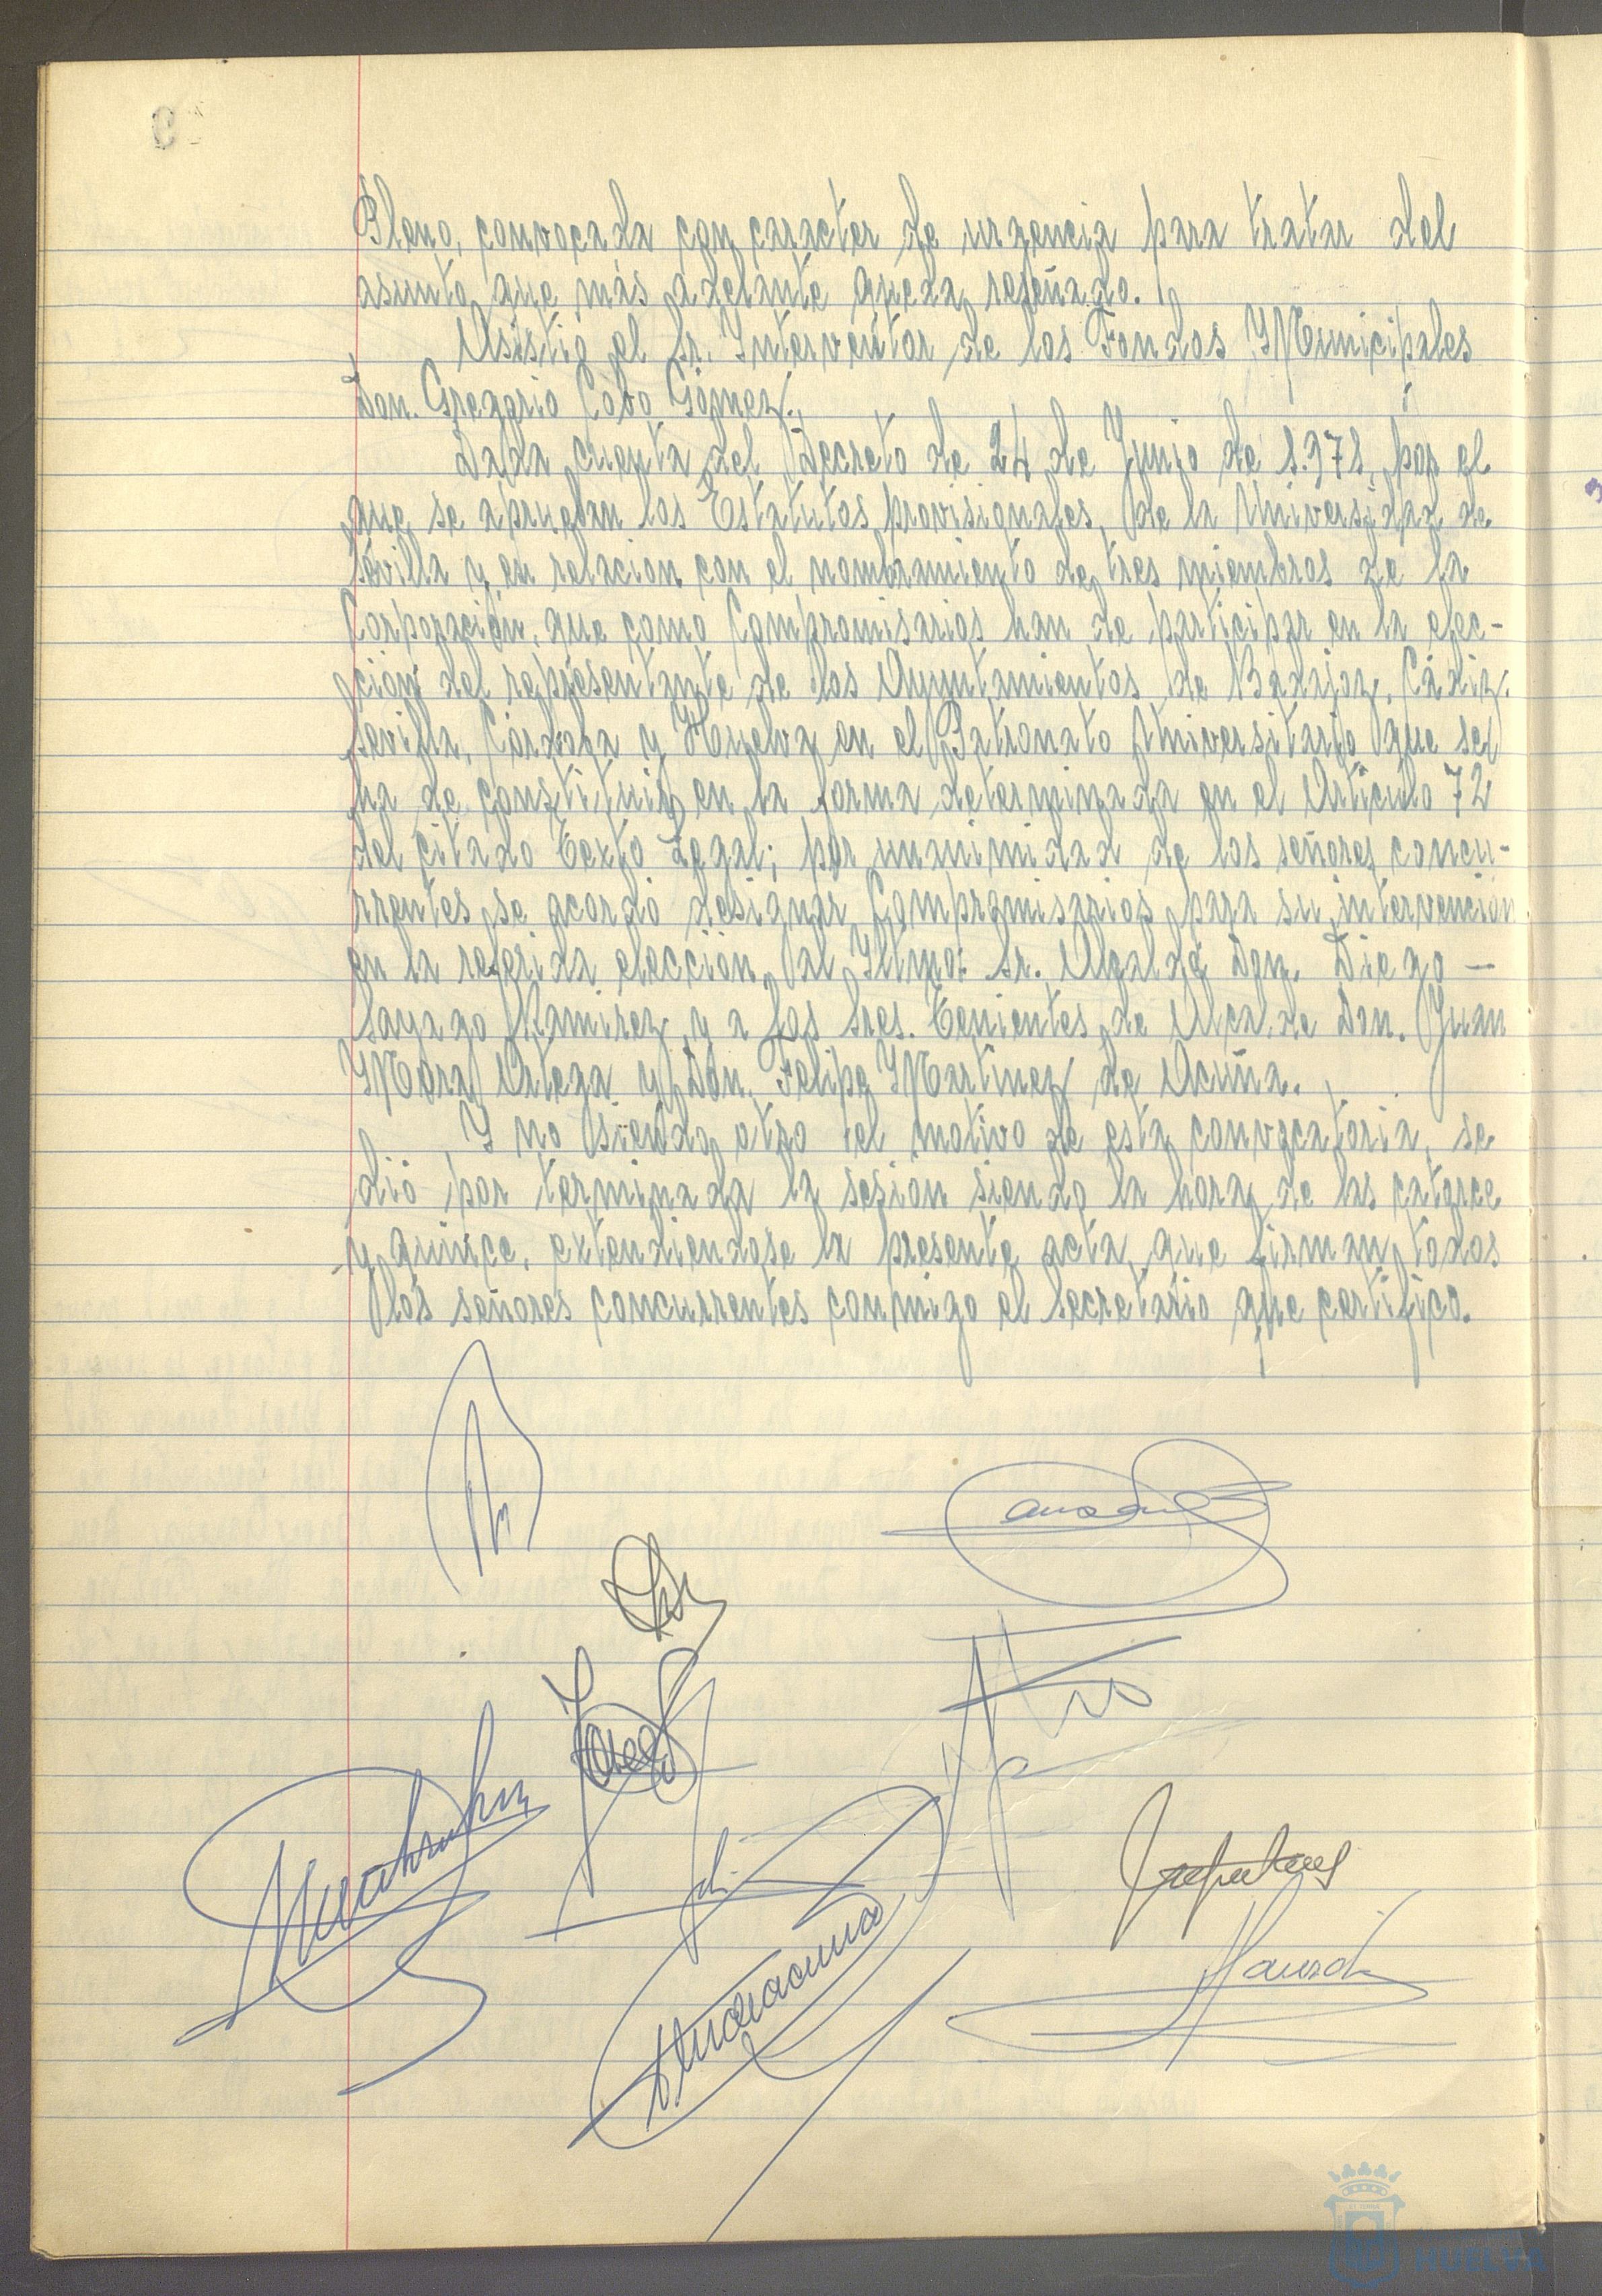 Pleno, convocada con caracter de urgencia para tratar del
asunto que más adelante queda reseñado.
Asistió el Sr. Interventor de los Fondos Municipales
Don. Gregorio Cobo Gómez.
Dada cuenta del Decreto de 24 de Junio de 1.971, por el
que se aprueban los Estatutos provisionales, de la Universidad de
Sevilla y en relacion con el nombramiento de tres miembros de la
Corporación, que como Compromisarios han de participar en la elec-
ción del representante de los Ayuntamientos de Badajoz, Cádiz,
Sevilla, Córdoba y Huelva en el Patronato Universitario que se
ha de constituir en la forma determinada en el Artículo 72
del citado Texto Legal; por unanimidad de los señores concu-
rrentes se acordó designar Compromisarios para su intervención
en la referida elección, al Iltmo. Sr. Alcalde Don. Diego -
Sayago Ramirez y a los Sres. Tenientes de Alcalde Don. Juan
Mora Ortega y Don. Felipe Martinez de Acuña.
Y no siendo otro el motivo de esta convocatoria, se
dió por terminada la sesión siendo la hora de las catorce
y quince, extendiendose la presente acta que firman todos
los señores concurrentes conmigo el Secretario que certifico.
HUELVA